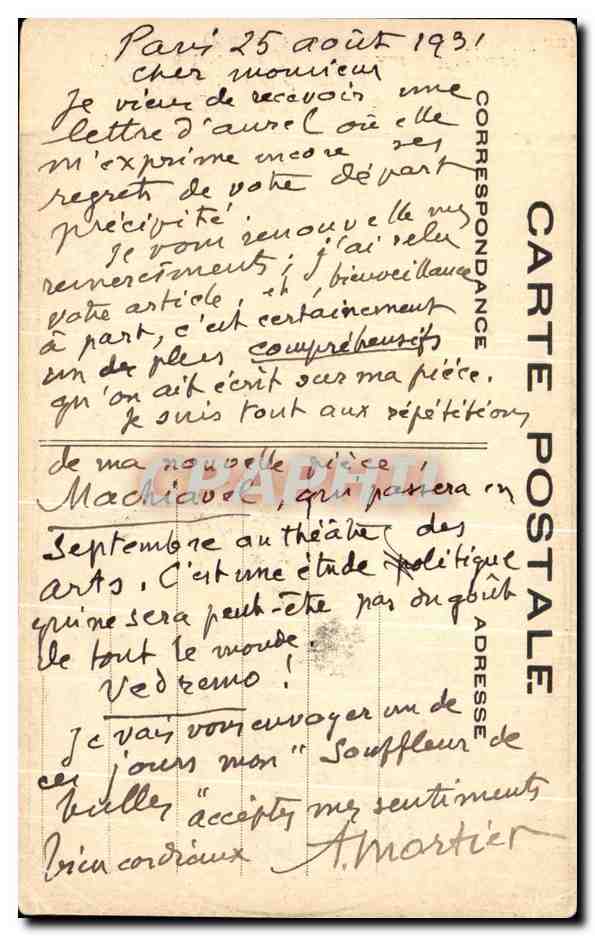 Paris 25 août 1931
cher monsieur
Je viens de recevoir une
lettre d'aurel où elle
m'exprime encore ses
regrets de votre départ
précipité.
Je vous renouvelle mes
remerciments; j'ai relu
votre article, et, bienveillance
à part, c'est certainement
un des plus compréhensifs
qu'on ait écrit sur ma pièce.
Je suis tout aux répétitions
de ma nouvelle pièce,
Machiavel, qui passera en
Septembre au théâtre des
arts. C'est une étude politique
qui ne sera peut-être pas du goût
de tout le monde.
Vedremo!
Je vais vous envoyer un de
ces jours mon "Souffleur de
bulles" acceptez mes sentiments
bien cordiaux A. Mortier
CARTE POSTALE
CORRESPONDANCE
ADRESSE
CPAPHIL